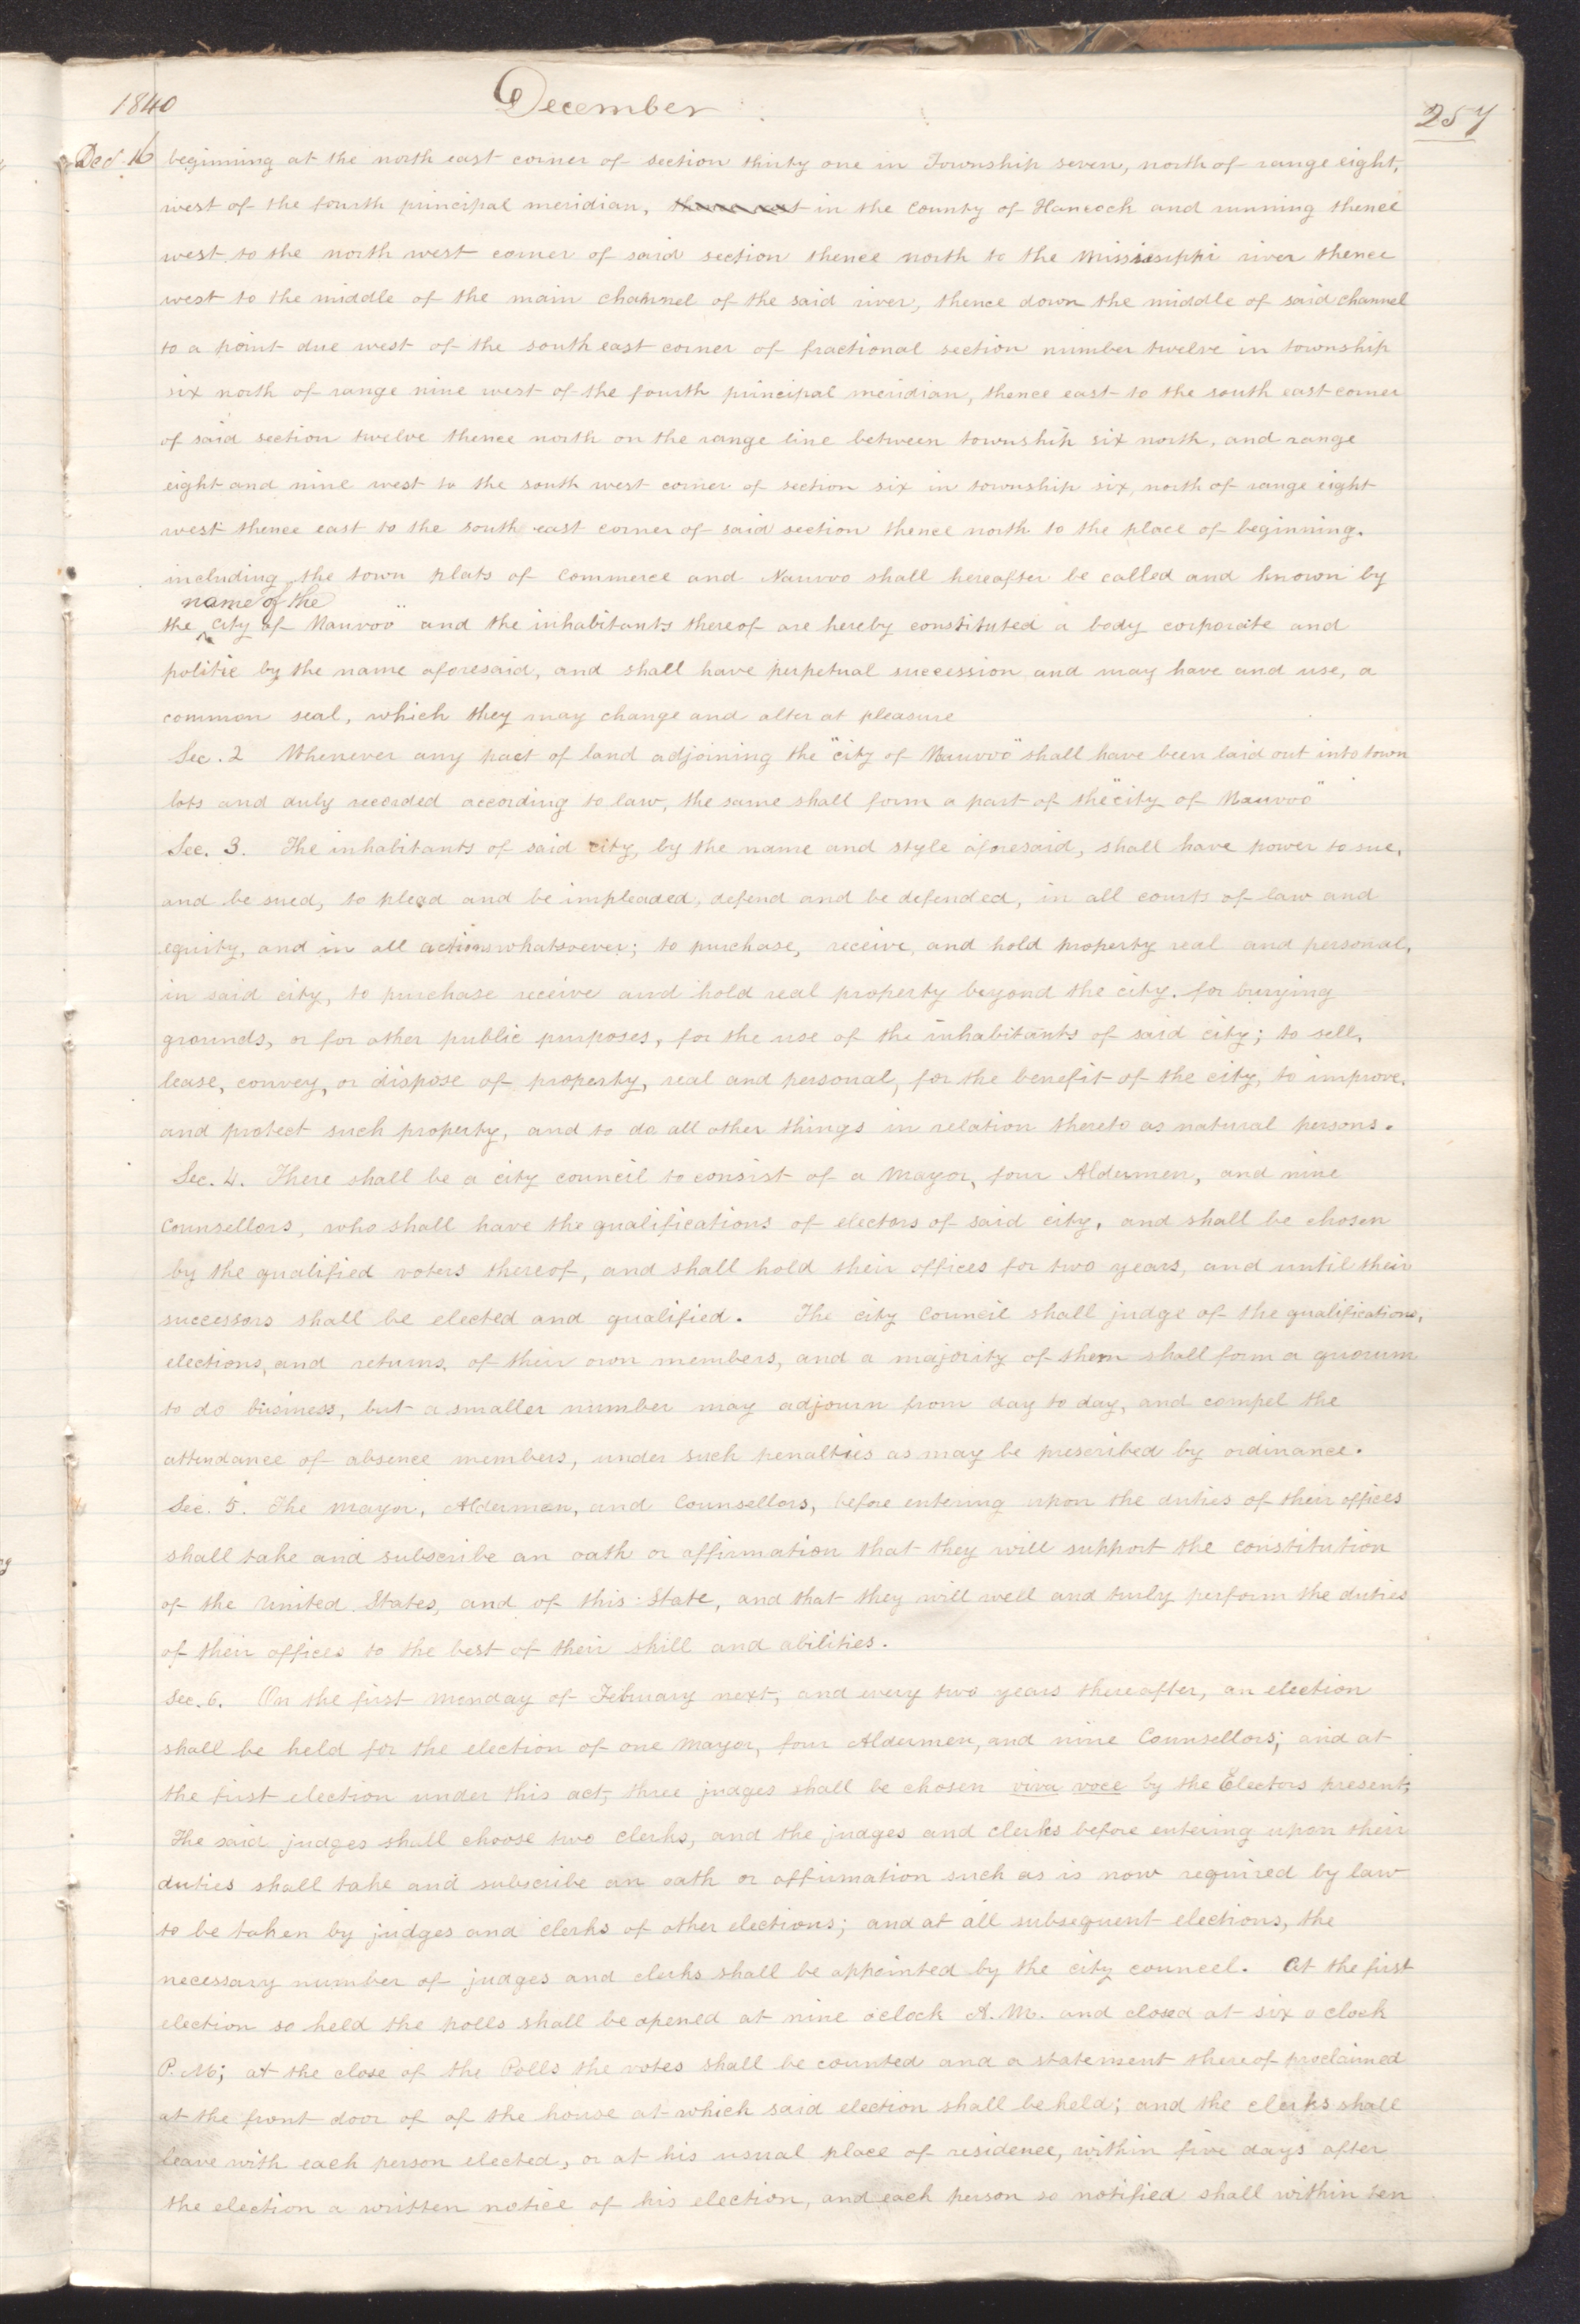 1840 December 257
Dec 16 beginning at the north east corner of section thirty one in Township seven, north of range eight,
west of the fourth principal meridian, in the County of Hancock and running thence
west to the north west corner of said section thence north to the Mississippi river thence
west to the middle of the main channel of the said river, thence down the middle of said channel
to a point due west of the south east corner of fractional section number twelve in township
six north of range nine west of the fourth principal meridian, thence east to the south east corner
of said section twelve thence north on the range line between township six north, and range
eight and nine west to the south west corner of section six in township six, north of range eight
west thence east to the south east corner of said section thence north to the place of beginning.
including the town plats of Commerce and Nauvoo shall hereafter be called and known by
name of the
the ^ City of Nauvoo" and the inhabitants thereof are hereby constituted a body corporate and
politic by the name aforesaid, and shall have perpetual succession and may have and use, a
common seal, which they may change and alter at pleasure
Sec. 2 Whenever any pact of land adjoining the "city of Nauvoo" shall have been laid out into town
lots and duly recorded according to law, the same shall form a part of the "city of Nauvoo"
Sec. 3. The inhabitants of said city, by the name and style aforesaid, shall have power to sue,
and be sued, to plead and be impleaded, defend and be defended, in all courts of law and
equity, and in all actions whatsoever; to purchase, receive, and hold property real and personal,
in said city, to purchase receive and hold real property beyond the city. for burying
grounds, or for other public purposes, for the use of the inhabitants of said city; to sell,
lease, convey, or dispose of property, real and personal, for the benefit of the city, to improve,
and protect such property, and to do all other things in relation thereto as natural persons.
Sec. 4. There shall be a city council to consist of a Mayor, four Aldermen, and nine
Counsellors, who shall have the qualifications of electors of said city, and shall be chosen
by the qualified voters thereof, and shall hold their offices for two years, and until their
successors shall be elected and qualified. The city Council shall judge of the qualifications,
elections, and returns, of their own members, and a majority of them shall form a quorum
to do business, but a smaller number may adjourn from day to day, and compel the
attendance of absence members, under such penalties as may be prescribed by ordinance.
Sec. 5. The Mayor, Aldermen, and Counsellors, before entering upon the duties of their offices
shall take and subscribe an oath or affirmation that they will support the constitution
of the United States, and of this State, and that they will well and truly perform the duties
of their offices to the best of their skill and abilities.
Sec. 6. On the first Monday of February next, and every two years thereafter, an election
shall be held for the election of one Mayor, four Aldermen, and nine Counsellors; and at
the first election under this act, three judges shall be chosen viva voce by the Electors present;
The said judges shall choose two clerks, and the judges and clerks before entering upon their
duties shall take and subscribe an oath or affirmation such as is now required by law
to be taken by judges and clerks of other elections; and at all subsequent elections, the
necessary number of judges and clerks shall be appointed by the city councel. At the first
election so held the polls shall be opened at nine oclock A.M. and closed at six o clock
P.M; at the close of the Polls the votes shall be counted and a statement thereof proclaimed
at the front door of of the house at which said election shall be held; and the clerks shall
leave with each person elected, or at his usual place of residence, within five days after
the election a written notice of his election, and each person so notified shall within ten